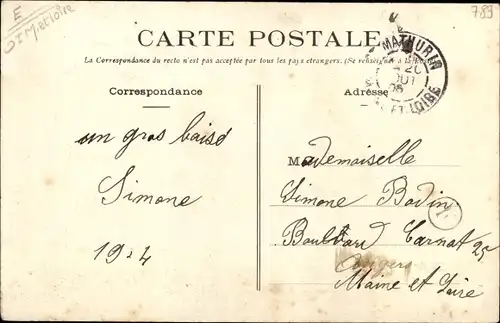 E
Met Loire
789
CARTE POSTALE
MATHURIN
20
OUT
05
ET LOIRE
La Correspondance du recto n'est pas acceptée par tous les pays étrangers. (Se renseigner à la
Correspondance
Adresse
un gros baisé
Simone
Mademoiselle
Simone Bodin
Boulevard Carnot 25
Angers
Maine et Loire